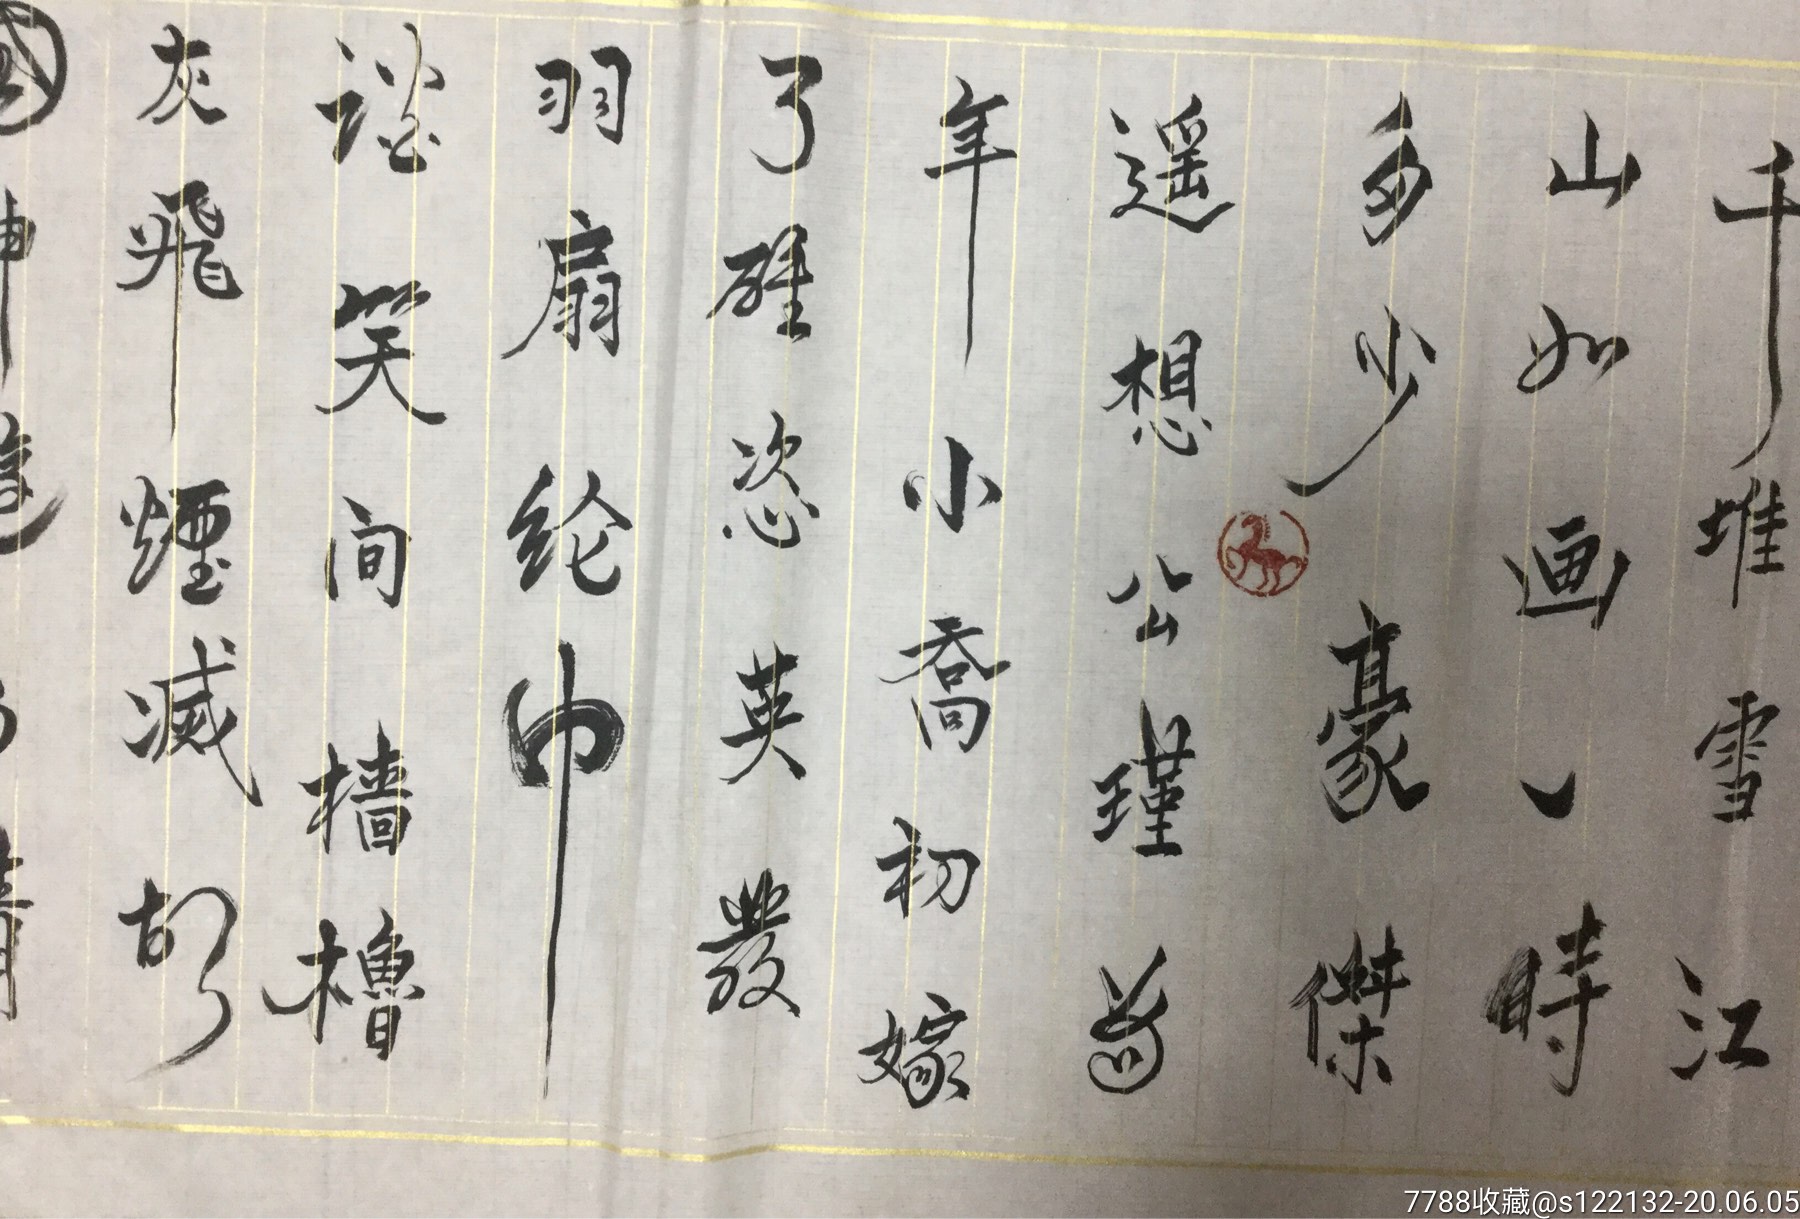 千堆雪江
山如画一時
多少豪傑
遥想公瑾當
年小喬初嫁
了雄恣英發
羽扇纶巾
談笑间樯櫓
灰飛煙滅故
國神遊
7788收藏@s122132-20.06.05